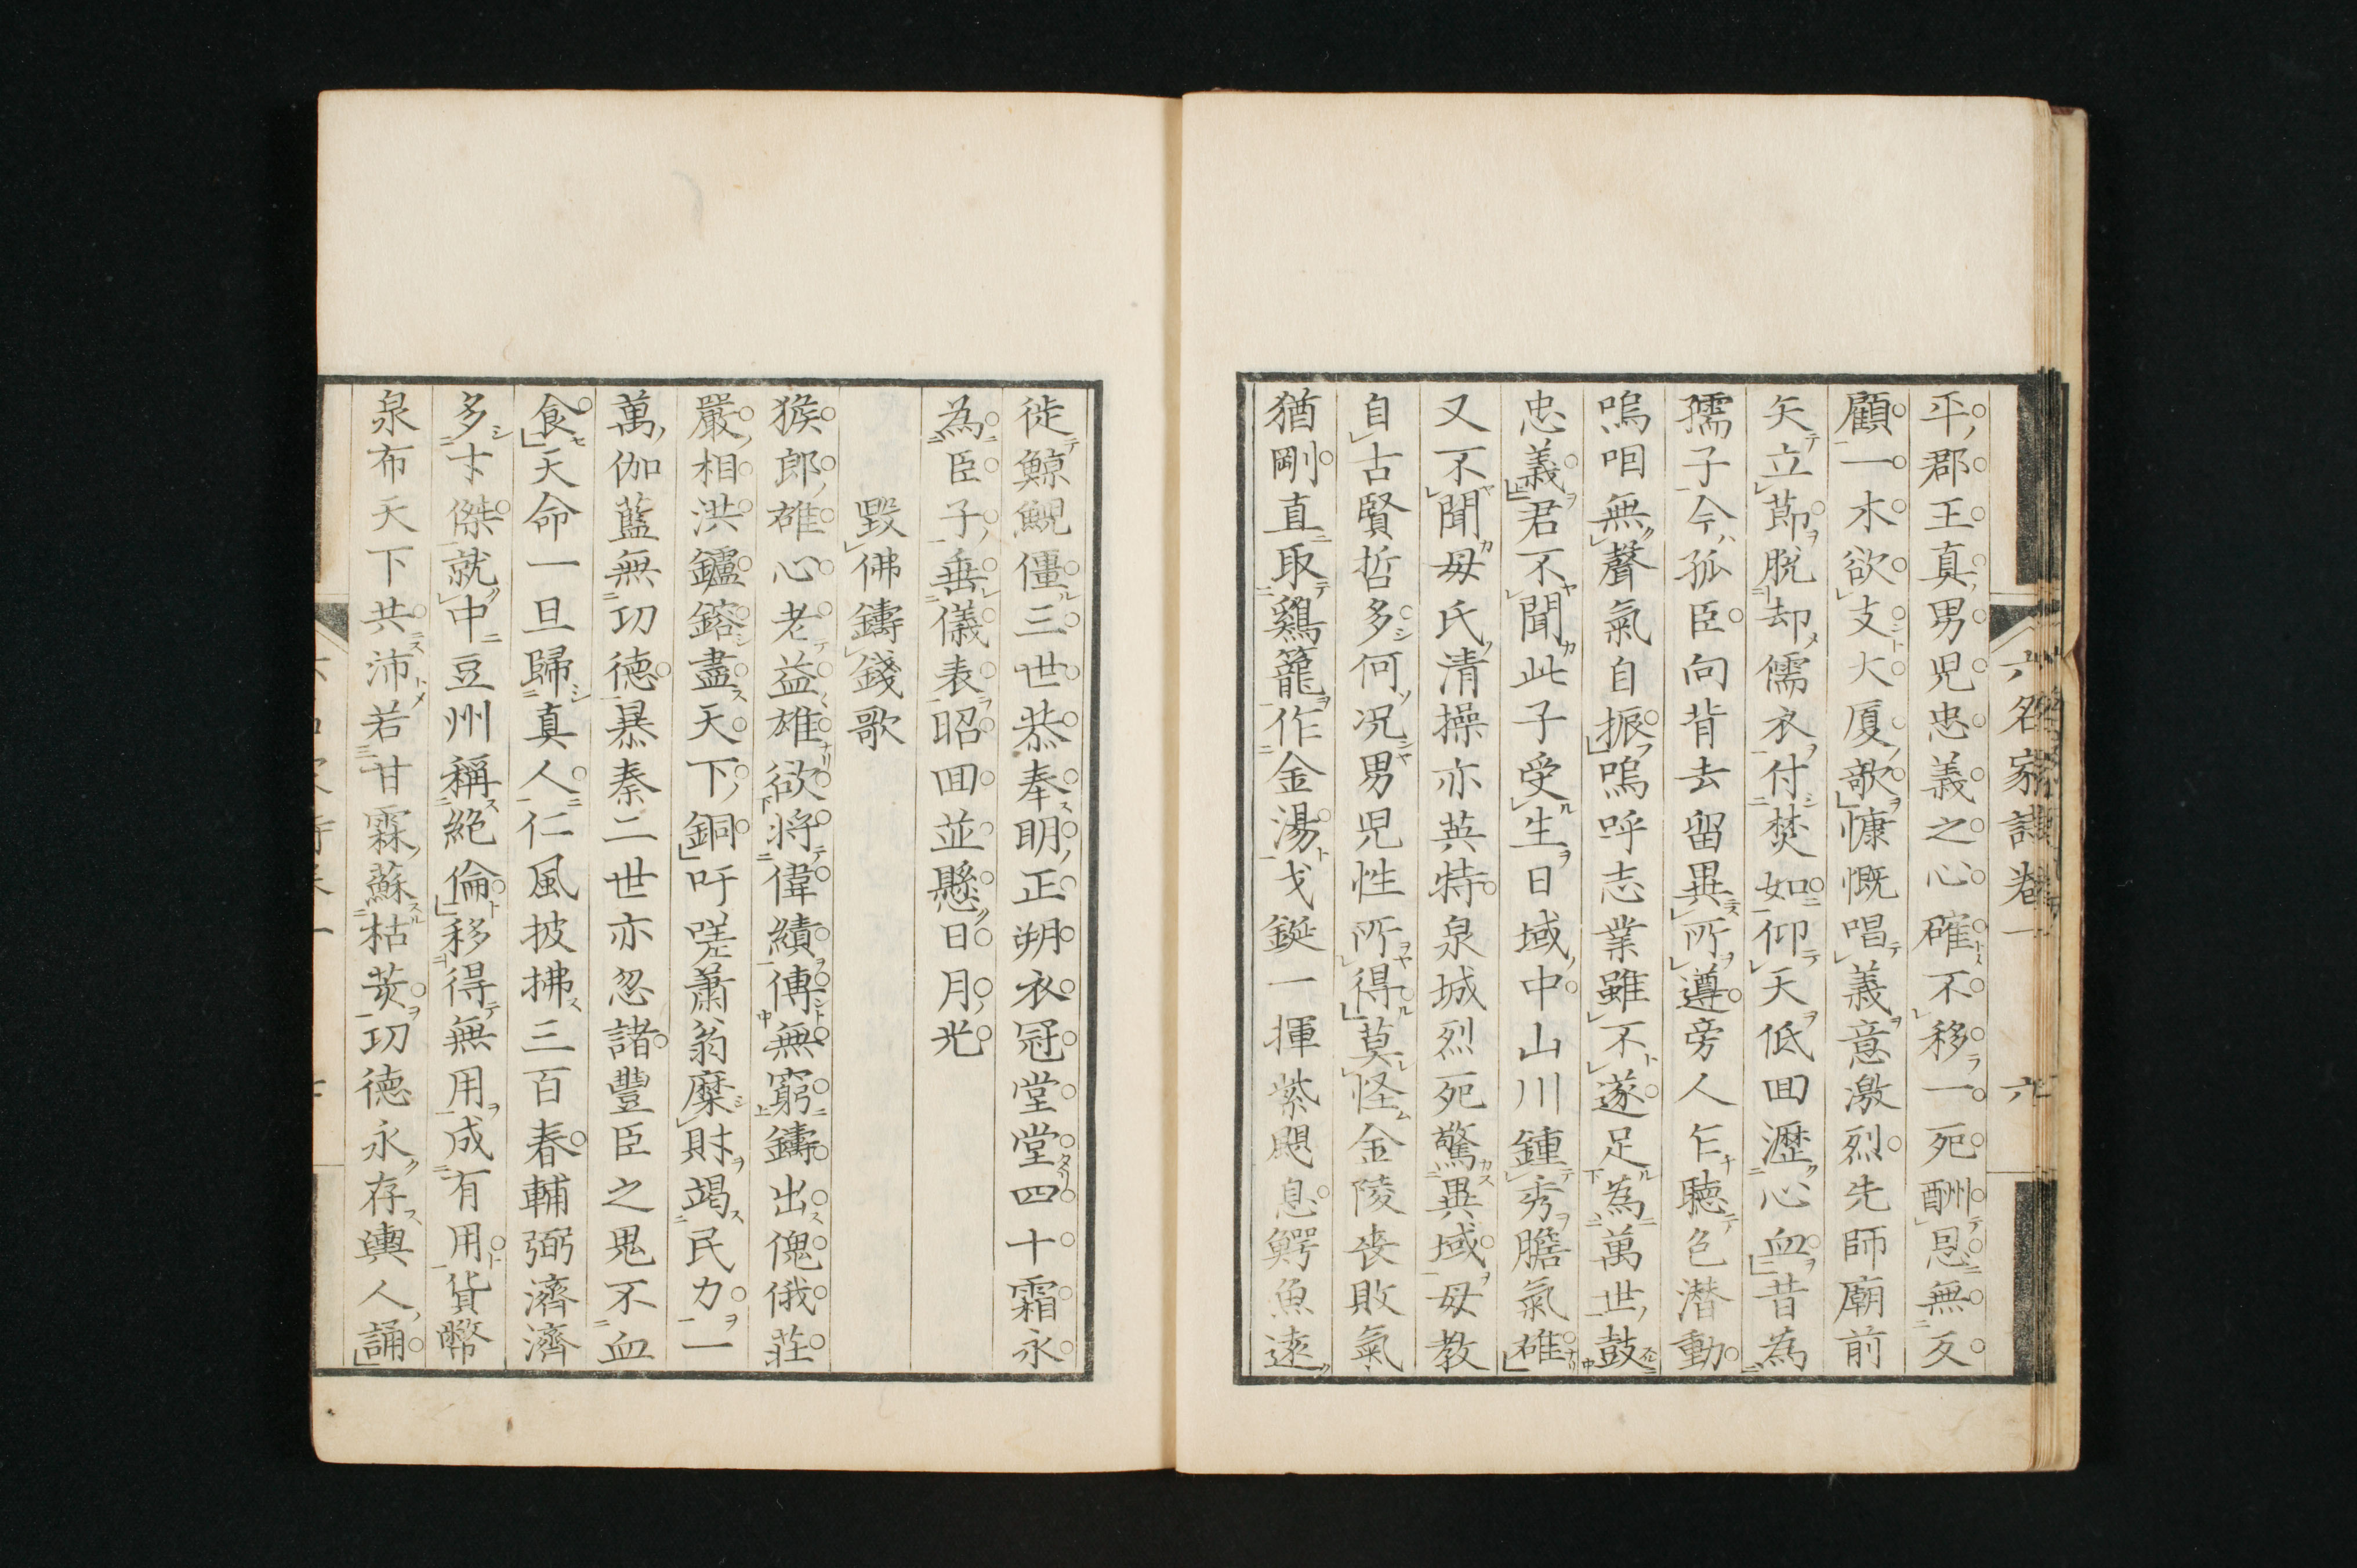 六名家詩卷一 六
平郡王真男兒忠義之心確不移一死酬恩無反
顧一木欲支大厦欹慷慨唱義意激烈先師廟前
矢立節脱却儒衣付焚如仰天低回瀝心血昔為
孺子今孤臣向背去留異所遵旁人乍聴色潜動
嗚咽無聲氣自振嗚呼志業雖不遂足為萬世鼓
忠義君不聞此子受生日域中山川鍾秀膽氣雄
又不聞毋氏清操亦英特泉城烈死驚異域毋教
自古賢哲多何况男兒性所得莫怪金陵喪敗氣
猶剛直取鷄籠作金湯戈鋋一揮紫颶息鰐魚遠
徙鯨鯢僵三世恭奉明正朔衣冠堂堂四十霜永
為臣子垂儀表昭回並懸日月光
毀佛鑄錢歌
猴郎雄心老益雄欲將偉績傳無窮鑄出傀俄莊
嚴相洪鑪鎔盡天下銅吁嗟蕭翁糜財竭民力一
萬伽藍無功德暴秦二世亦忽諸豐臣之鬼不血
食天命一旦歸真人仁風披拂三百春輔弼濟濟
多才傑就中豆州稱絶倫移得無用成有用貨幣
泉布天下共沛若甘霖蘇枯荄功德永存輿人誦